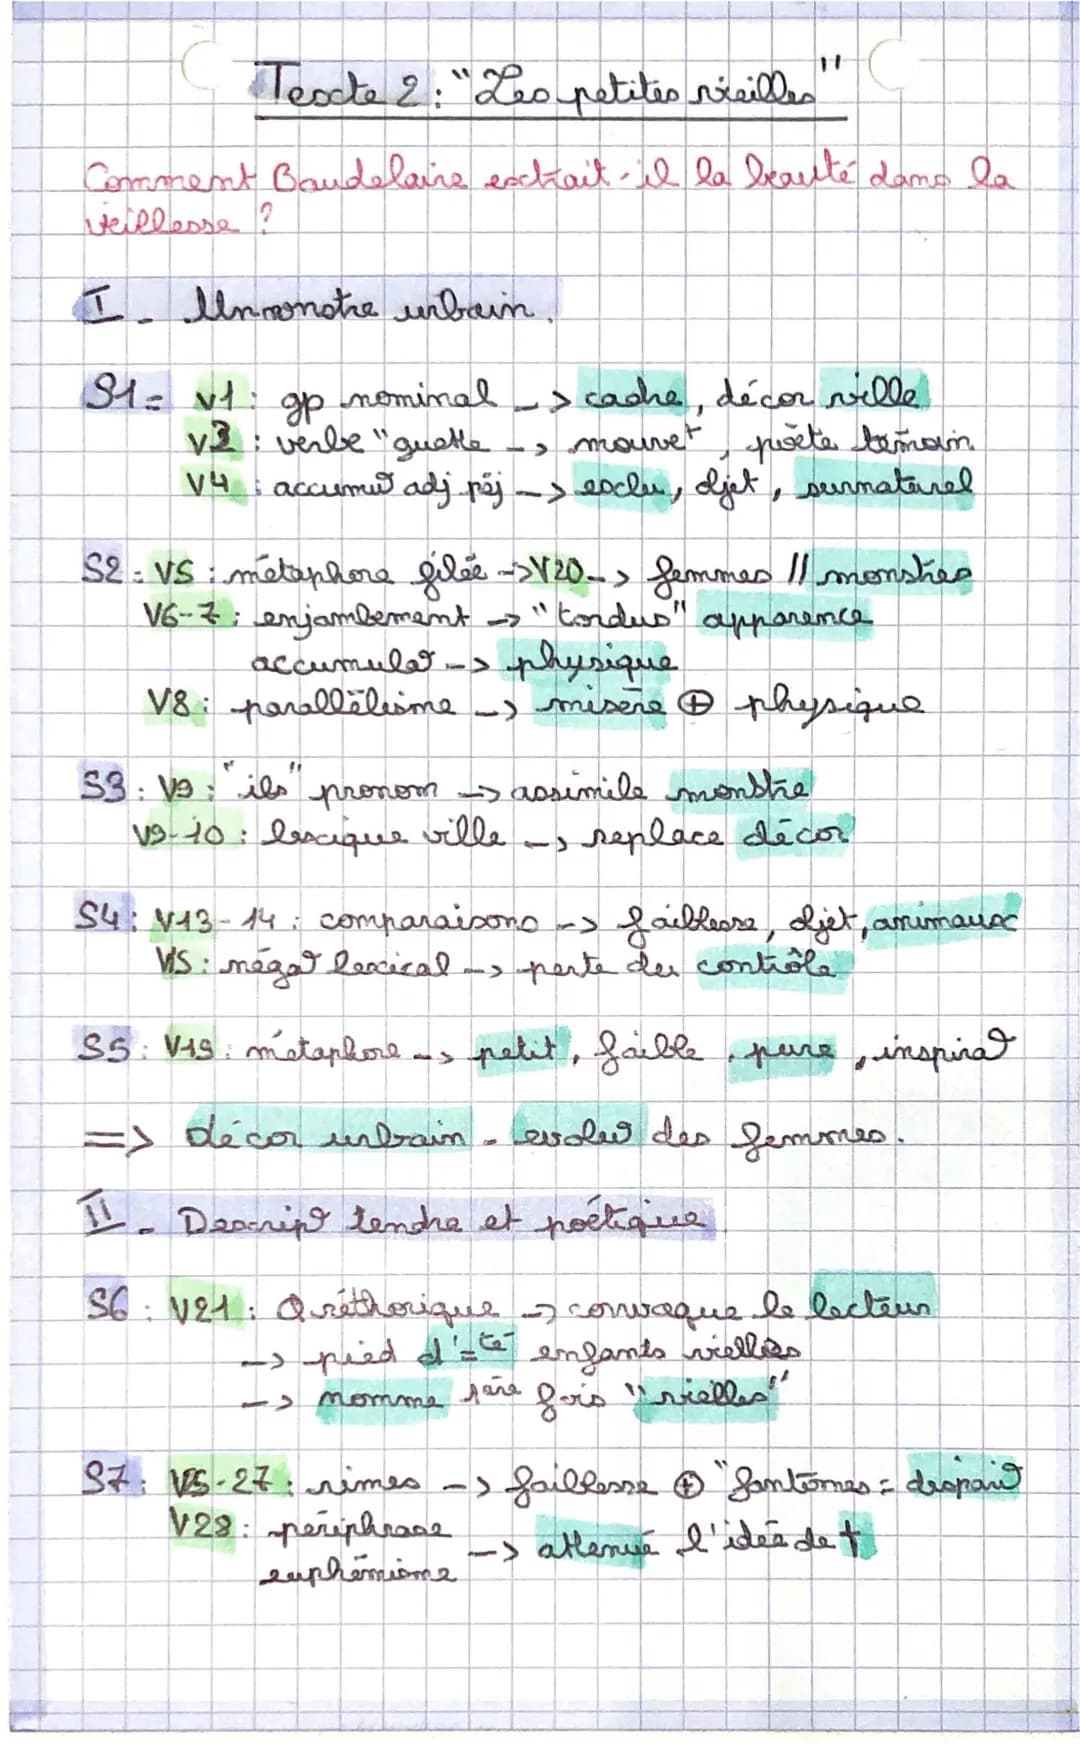 Texte 2 : "Les petites vieilles"
Comment Baudelaire extrait-il la beauté dans la
vieillesse ?
I - Un monstre urbain.
S1 = V1 : gp nominal -> cadre, décor ville
V3 : verbe "guette -> mouvet, poète témoin
V4 : accumul° adj péj -> exclu, objet, surnaturel
S2 : V5 : métaphore filée -> V20 -> femmes // monstres
V6-7 : enjambement -> "tordus" apparence
accumulat° -> physique
V8 : parallélisme -> misère ⊕ physique
S3 : V9 : "ils" pronom -> assimile monstre
V9-10 : lexique ville -> replace décor
S4 : V13-14 : comparaisons -> faiblesse, objet, animaux
V15 : négat° lexical -> perte du contrôle
S5 : V19 : métaphore -> petit, faible, pure, inspirat°
=> décor urbain - évolu° des femmes.
II - Descript° tendre et poétique
S6 : V21 : Q réthorique -> convoque le lecteur
-> pied d'=té enfants vielles
-> nomme 1ère fois "vielles"
S7 : V25-27 : rimes -> faiblesse ⊕ "fantômes = disparit°
V28 : périphrase
euphémisme -> atténué l'idée de †